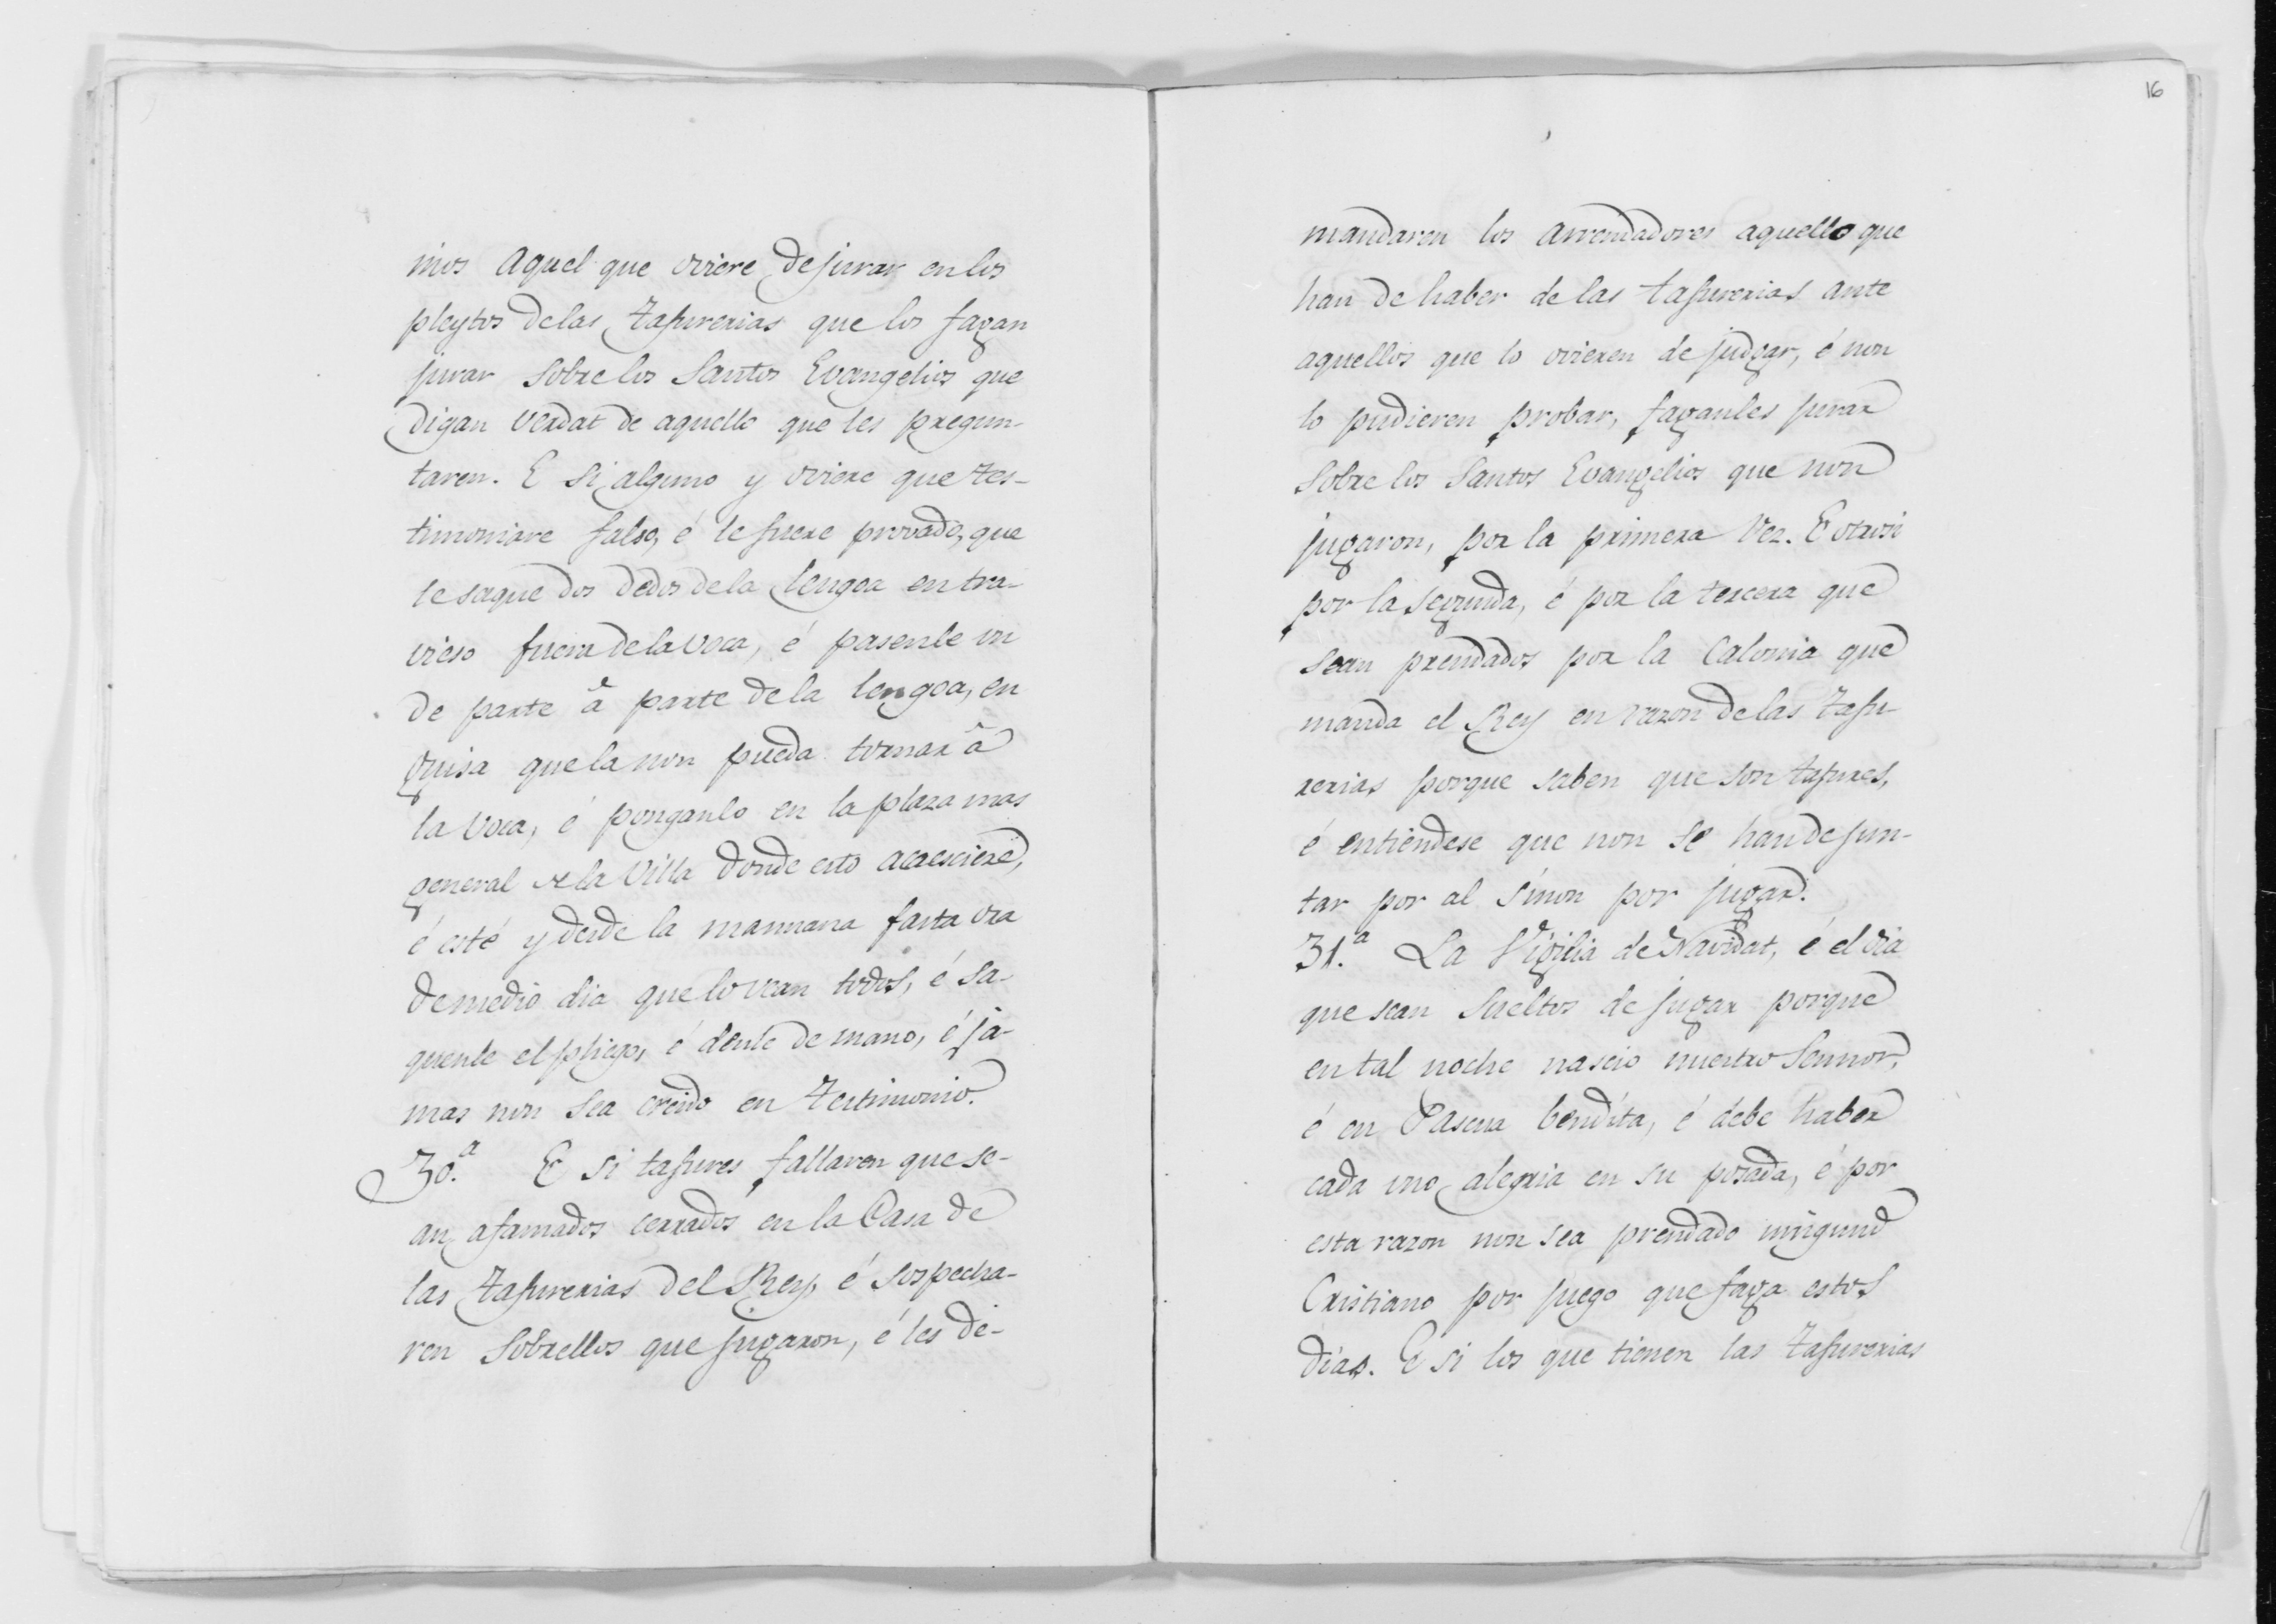 mos aquel que oviere de jurar en los
pleytos de las Tafurerias que los fagan
jurar sobre los Santos Evangelios que
digan verdat de aquello que les pregun-
taren. E si alguno y oviere que tes-
timoniare falso, é le fuere provado, que
le saque dos dedos de la lengoa en tra-
vieso fuera de la voca, é pasenle un
de parte â parte de la lengoa, en
guisa que la non pueda tornar â
la voca, é ponganlo en la plaza mas
general de la Villa donde esto acaesciere,
é esté y desde la mannana fasta ora
de medio dia que lo vean todos, é sa-
quenle el pliego, é denle de mano, é ja-
mas non sea creido en Testimonio.
30.ª E si tafures fallaren que se-
an afamados cerrados en la Casa de
las Tafurerias del Rey, é sospecha-
ren sobrellos que jugaron, é les de-
16
mandaren los arrendadores aquello que
han de haber de las tafurerias ante
aquellos que lo ovieren de judgar, é non
lo pudieren probar, faganles jurar
sobre los Santos Evangelios que non
jugaron, por la primera vez. E otrosi
por la segunda, é por la tercera que
sean prendados por la Calonia que
manda el Rey en razon de las Tafu-
rerias porque saben que son tafures,
é entiendese que non se han de jun-
tar por al sinon por jugar.
31.ª La Vigilia de Navidat, é el dia
que sean sueltos de jugar porque
en tal noche nascio nuestro Sennor,
é en Pascua bendita, é debe haber
cada uno alegria en su posada, é por
esta razon non sea prendado ningund
Cristiano por juego que faga estos
dias. E si los que tienen las Tafurerias